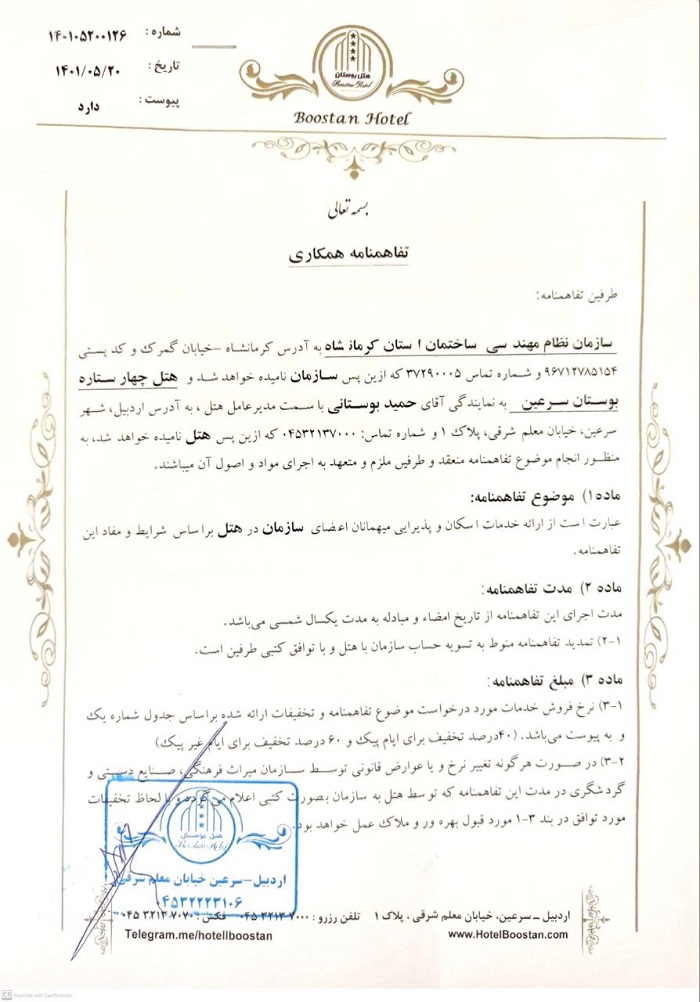 شماره: ۱۴۰۱۰۵۲۰۰۱۲۶
تاریخ: ۱۴۰۱/۰۵/۲۰
پیوست: دارد
هتل بوستان
Boostan Hotel
Boostan Hotel
بسمه تعالی
تفاهمنامه همکاری
طرفین تفاهمنامه:
سازمان نظام مهندسی ساختمان استان کرمانشاه به آدرس کرمانشاه –خیابان گمرک و کد پستی
۹۶۷۱۲۷۸۵۱۵۴ و شماره تماس ۳۷۲۹۰۰۰۵ که ازین پس سازمان نامیده خواهد شد و هتل چهار ستاره
بوستان سرعین به نمایندگی آقای حمید بوستانی با سمت مدیرعامل هتل ، به آدرس اردبیل، شهر
سرعین، خیابان معلم شرقی، پلاک ۱ و شماره تماس: ۰۴۵۳۲۱۳۷۰۰۰ که ازین پس هتل نامیده خواهد شد، به
منظور انجام موضوع تفاهمنامه منعقد و طرفین ملزم و متعهد به اجرای مواد و اصول آن میباشند.
ماده۱) موضوع تفاهمنامه:
عبارت است از ارائه خدمات اسکان و پذیرایی میهمانان اعضای سازمان در هتل براساس شرایط و مفاد این
تفاهمنامه.
ماده ۲) مدت تفاهمنامه:
مدت اجرای این تفاهمنامه از تاریخ امضاء و مبادله به مدت یکسال شمسی می‌باشد.
۲-۱) تمدید تفاهمنامه منوط به تسویه حساب سازمان با هتل و با توافق کتبی طرفین است.
ماده ۳) مبلغ تفاهمنامه:
۳-۱) نرخ فروش خدمات مورد درخواست موضوع تفاهمنامه و تخفیفات ارائه شده براساس جدول شماره یک
و به پیوست می‌باشد. (۴۰درصد تخفیف برای ایام پیک و ۶۰ درصد تخفیف برای ایام غیر پیک)
۳-۲) در صورت هرگونه تغییر نرخ و یا عوارض قانونی توسط سازمان میراث فرهنگی، صنایع دستی و
گردشگری در مدت این تفاهمنامه که توسط هتل به سازمان بصورت کتبی اعلام می‌گردد و با لحاظ تخفیفات
مورد توافق در بند ۳-۱ مورد قبول بهره ور و ملاک عمل خواهد بود.
هتل بوستان
Boostan Hotel
اردبیل-سرعین خیابان معلم شرقی
۰۴۵۳۲۲۲۳۱۰۶
اردبیل – سرعین، خیابان معلم شرقی ، پلاک ۱ تلفن رزرو : ۰۴۵ ۳۲۱۳ ۷۰۰۰ فکس : ۰۴۵ ۳۲۱۳ ۷۰۷۰
www.HotelBoostan.com Telegram.me/hotellboostan
CS Scanned with CamScanner